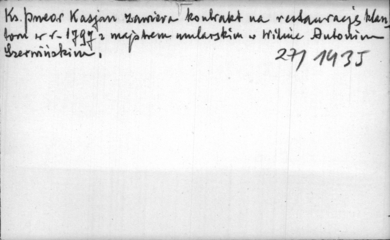 Ks. Przeor Kasjan zawiera kontrakt na restaurację klasz=
toru w r. 1797 z majstrem mularskim w Wilnie Antonim
Szerwińskim.
27/1935